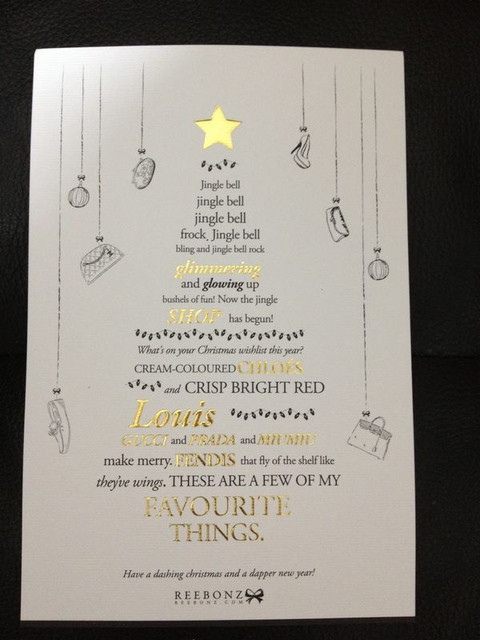 Jingle bell
jingle bell
jingle bell
frock, Jingle bell
bling and jingle bell rock
glimmering
and glowing up
bushels of fun! Now the jingle
SHOP has begun!
What's on your Christmas wishlist this year?
CREAM-COLOURED CHLOÉS
and CRISP BRIGHT RED
Louis
GUCCI and PRADA and MIU MIU
make merry. FENDIS that fly of the shelf like
they've wings. THESE ARE A FEW OF MY
FAVOURITE
THINGS.
Have a dashing christmas and a dapper new year!
REEBONZ
REEBONZ.COM